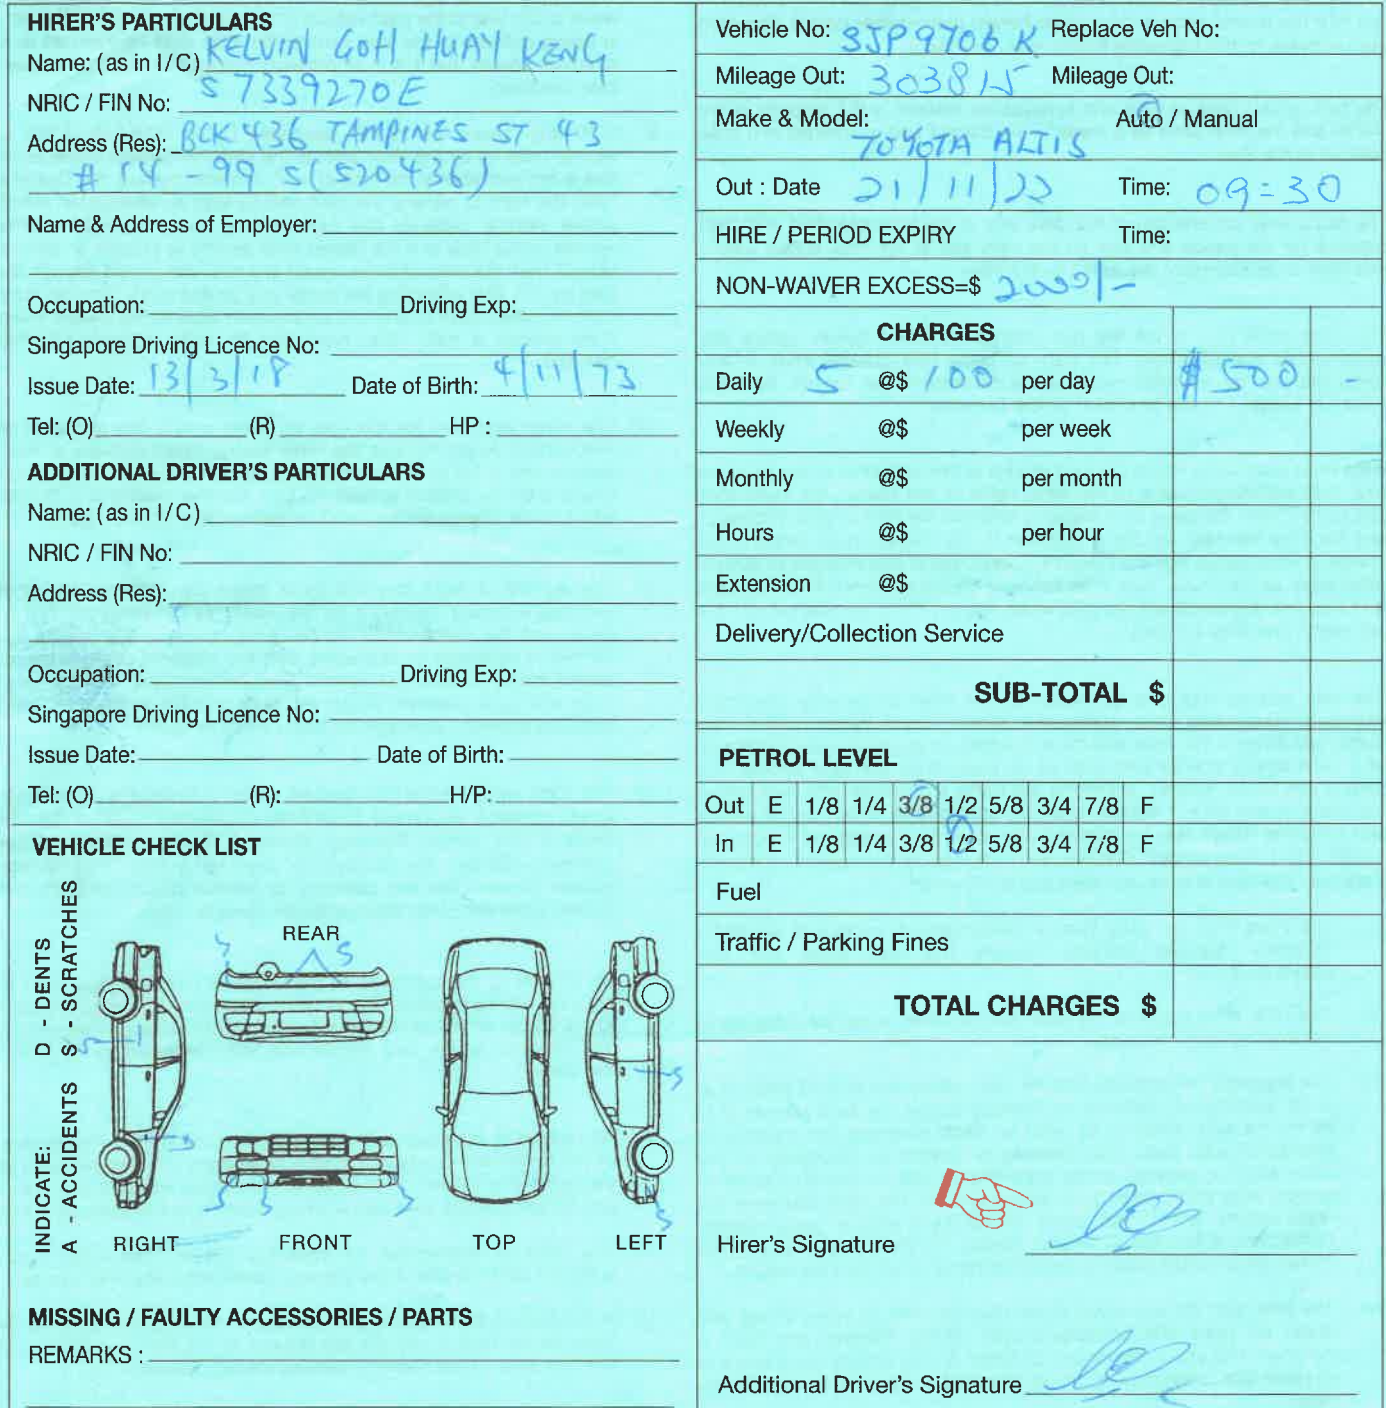 HIRER'S PARTICULARS
Name: (as in I/C) KELVIN GOH HUAY KENG
NRIC / FIN No: S7339270E
Address (Res): BLK 436 TAMPINES ST 43
#14-99 S(520436)
Name & Address of Employer:
Occupation: Driving Exp:
Singapore Driving Licence No:
Issue Date: 13/3/18 Date of Birth: 4/11/73
Tel: (O) (R) HP :
ADDITIONAL DRIVER'S PARTICULARS
Name: (as in I/C)
NRIC / FIN No:
Address (Res):
Occupation: Driving Exp:
Singapore Driving Licence No:
Issue Date: Date of Birth:
Tel: (O) (R): H/P:
VEHICLE CHECK LIST
INDICATE: D - DENTS
A - ACCIDENTS S - SCRATCHES
REAR
S S
S S
S
S S S S
RIGHT FRONT TOP LEFT
MISSING / FAULTY ACCESSORIES / PARTS
REMARKS :
Vehicle No: SJP9706K Replace Veh No:
Mileage Out: 303815 Mileage Out:
Make & Model: Auto / Manual
TOYOTA ALTIS
Out : Date 21/11/22 Time: 09:30
HIRE / PERIOD EXPIRY Time:
NON-WAIVER EXCESS=$ 2000/-
CHARGES
Daily 5 @$ 100 per day $500 -
Weekly @$ per week
Monthly @$ per month
Hours @$ per hour
Extension @$
Delivery/Collection Service
SUB-TOTAL $
PETROL LEVEL
Out E 1/8 1/4 3/8 1/2 5/8 3/4 7/8 F
In E 1/8 1/4 3/8 1/2 5/8 3/4 7/8 F
Fuel
Traffic / Parking Fines
TOTAL CHARGES $
Hirer's Signature
Additional Driver's Signature